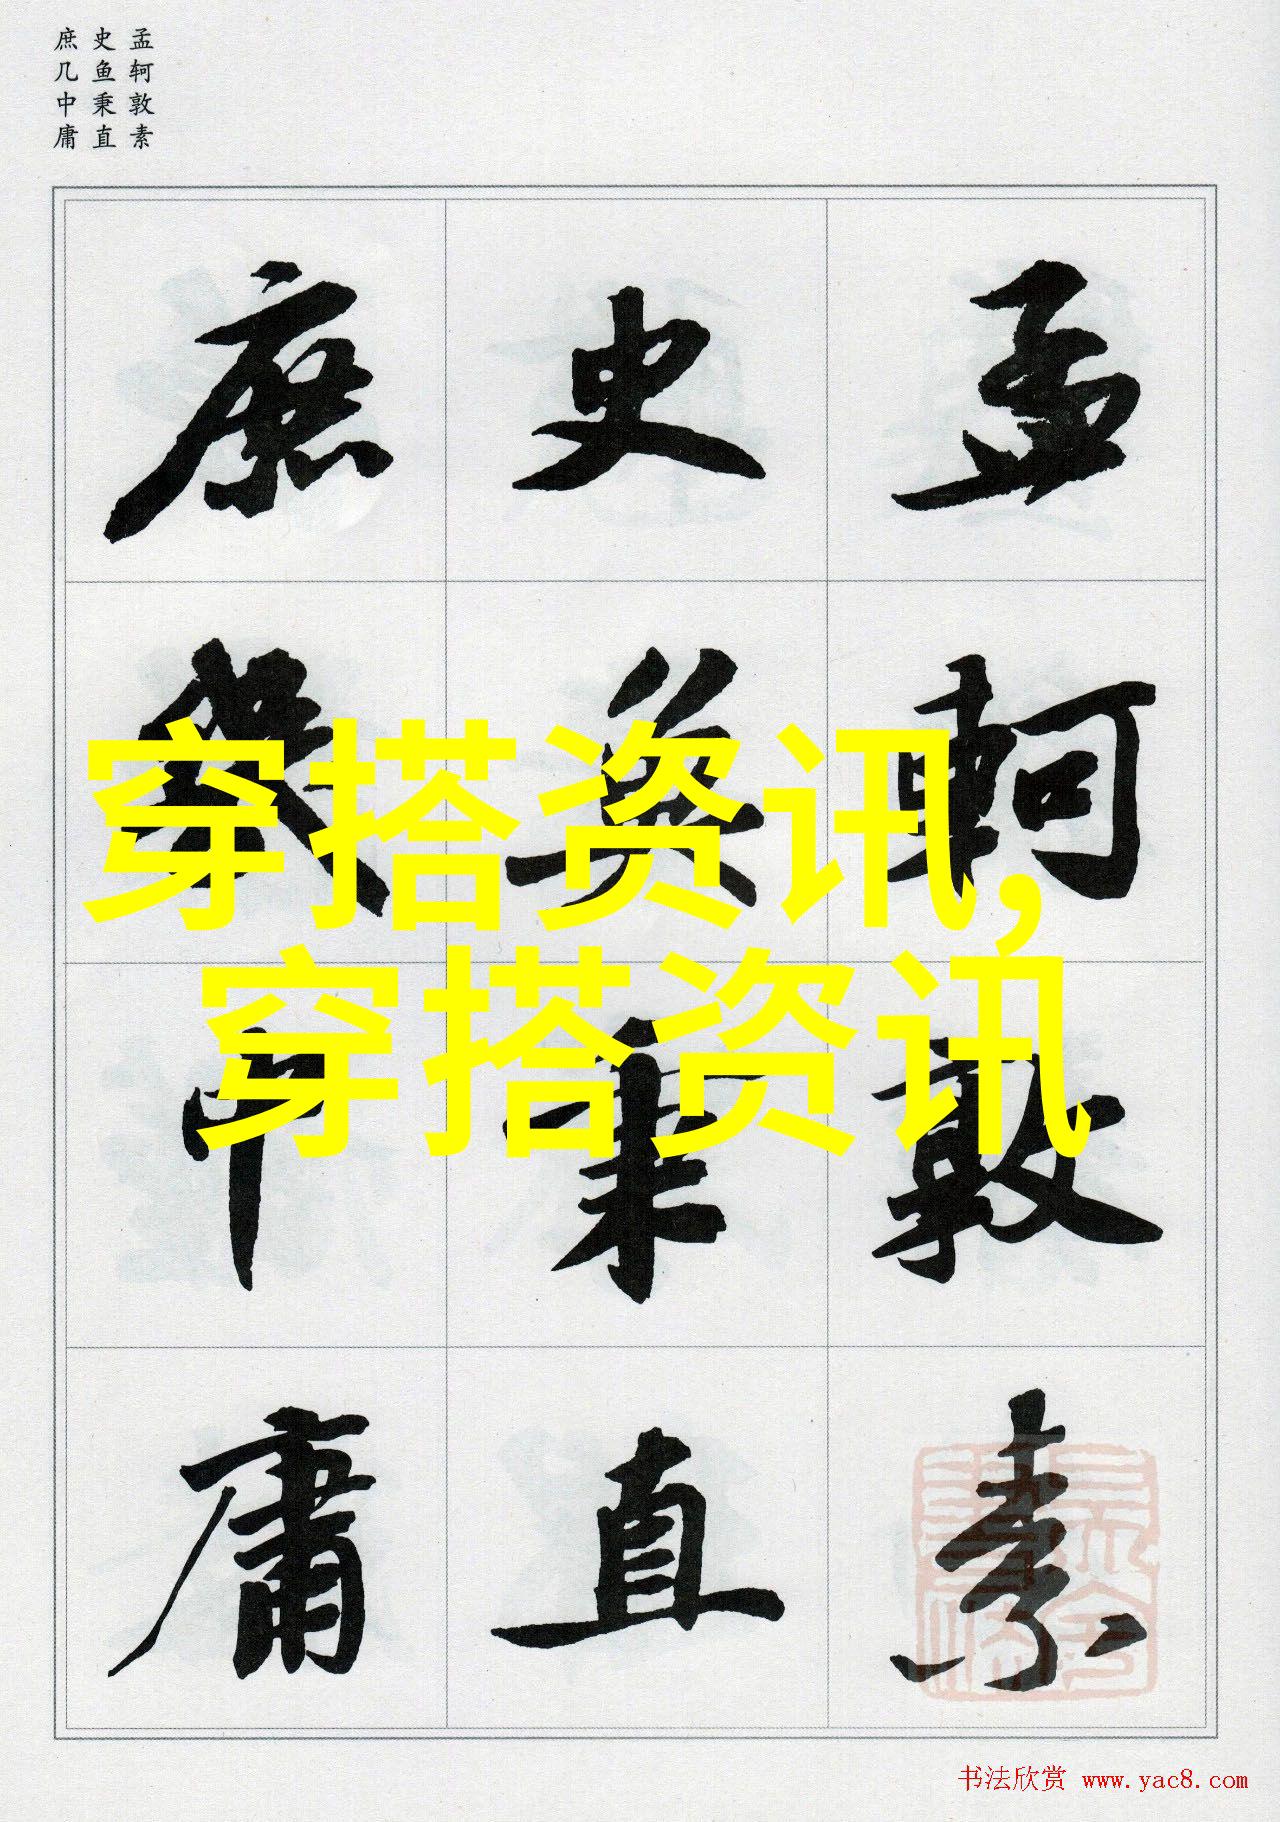 孟轲敦素
史鱼秉直
庶几中庸
孟軻敦素
史魚秉直
庶幾中庸
穿搭资讯,
穿搭资讯
书法欣赏 www.yac8.com